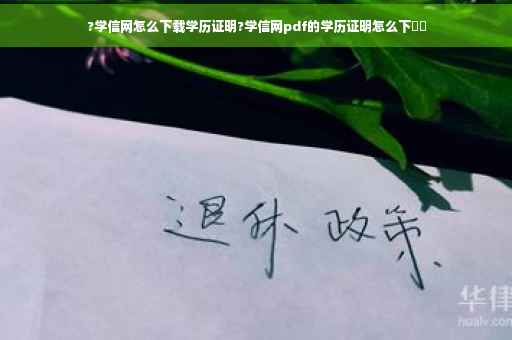 ?学信网怎么下载学历证明?学信网pdf的学历证明怎么下
退休 政策
华律
hualv.com